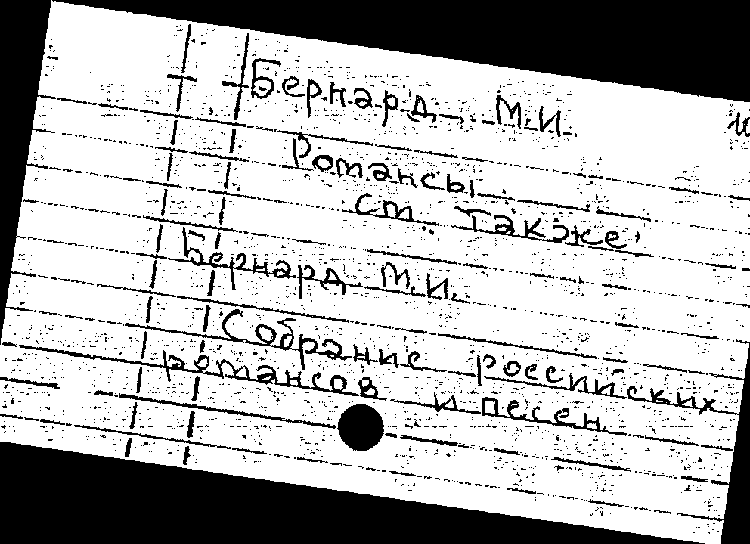 Бернард М.И.
Романсы
см. также
Бернард М.И.
Собрание российских
романсов и песен